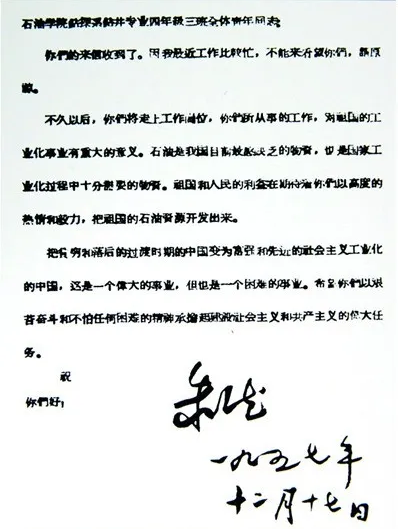 石油学院钻探系钻井专业四年级三班全体青年同志:
你們的来信收到了。因我最近工作比較忙,不能来看望你們,請原
諒。
不久以后,你們将走上工作崗位,你們所从事的工作,对祖国的工
业化事业有重大的意义。石油是我国目前最感缺乏的物資,也是国家工
业化过程中十分要的物資。祖国和人民的利益在期待着你們以高度的
热情和毅力,把祖国的石油資源开发出来。
把貧穷和落后的过渡时期的中国变为富强和先进的社会主义工业化
的中国,这是一个偉大的事业,但也是一个困难的事业。希望你們以艰
苦奋斗和不怕任何困难的精神承担起建設社会主义和共产主义的偉大任
务。
祝
你們好!
朱德
一九五七年
十二月十七日